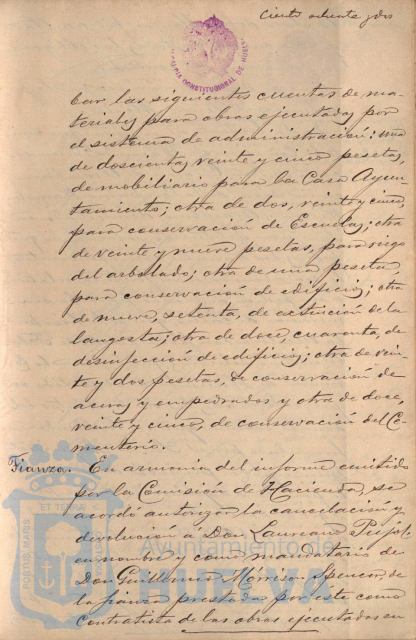 Ciento ochenta y dos
ALCALDIA CONSTITUCIONAL DE HUELVA
bar las siguientes cuentas de ma-
teriales para obras ejecutadas por
el sistema de administración: una
de doscientas veinte y cinco pesetas,
de mobiliario para la Casa Ayun-
tamiento; otra de dos, veinte y cinco
para conservación de Escuelas; otra
de veinte y nueve pesetas, para riego
del arbolado; otra de una peseta,
para conservación de edificios; otra
de nueve, setenta, de extinción de la
langosta; otra de doce, cuarenta, de
desinfección de edificios; otra de vein-
te y dos pesetas, de conservación de
aceras y empedrados y otra de doce,
veinte y cinco, de conservación del Ce-
menterio.
Fianza. En armonía del informe emitido
por la Comisión de Hacienda, se
acordó autorizar la cancelación y
devolución á Don Laureano
en nombre y como mandatario de
Don Guillermo Mórrison Spencer, de
la fianza prestada por éste como
Contratista de las obras ejecutadas en
PORTUS MARIS ET TERRAE
Ayuntamiento de
HUELVA